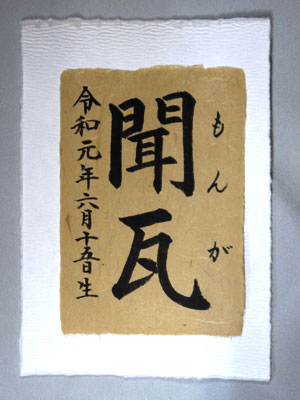 もんが
聞瓦
令和元年六月十五日生